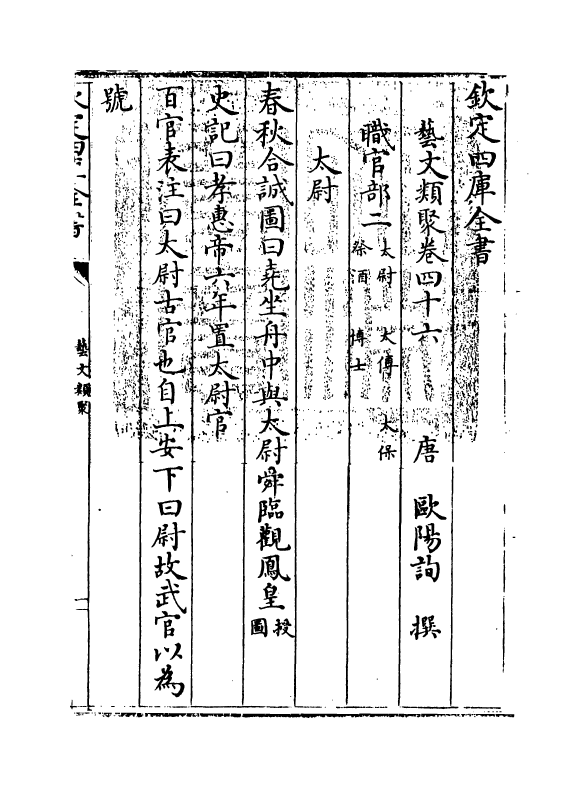 欽定四庫全書
藝文類聚卷四十六　唐　歐陽詢　撰
職官部二 太尉　太傅　太保
祭酒　博士
太尉
春秋合誠圖曰堯坐舟中與太尉舜臨觀鳳皇授
圖
史記曰孝惠帝六年置太尉官
百官表注曰太尉古官也自上安下曰尉故武官以為
號
欽定四庫全書
藝文類聚
一